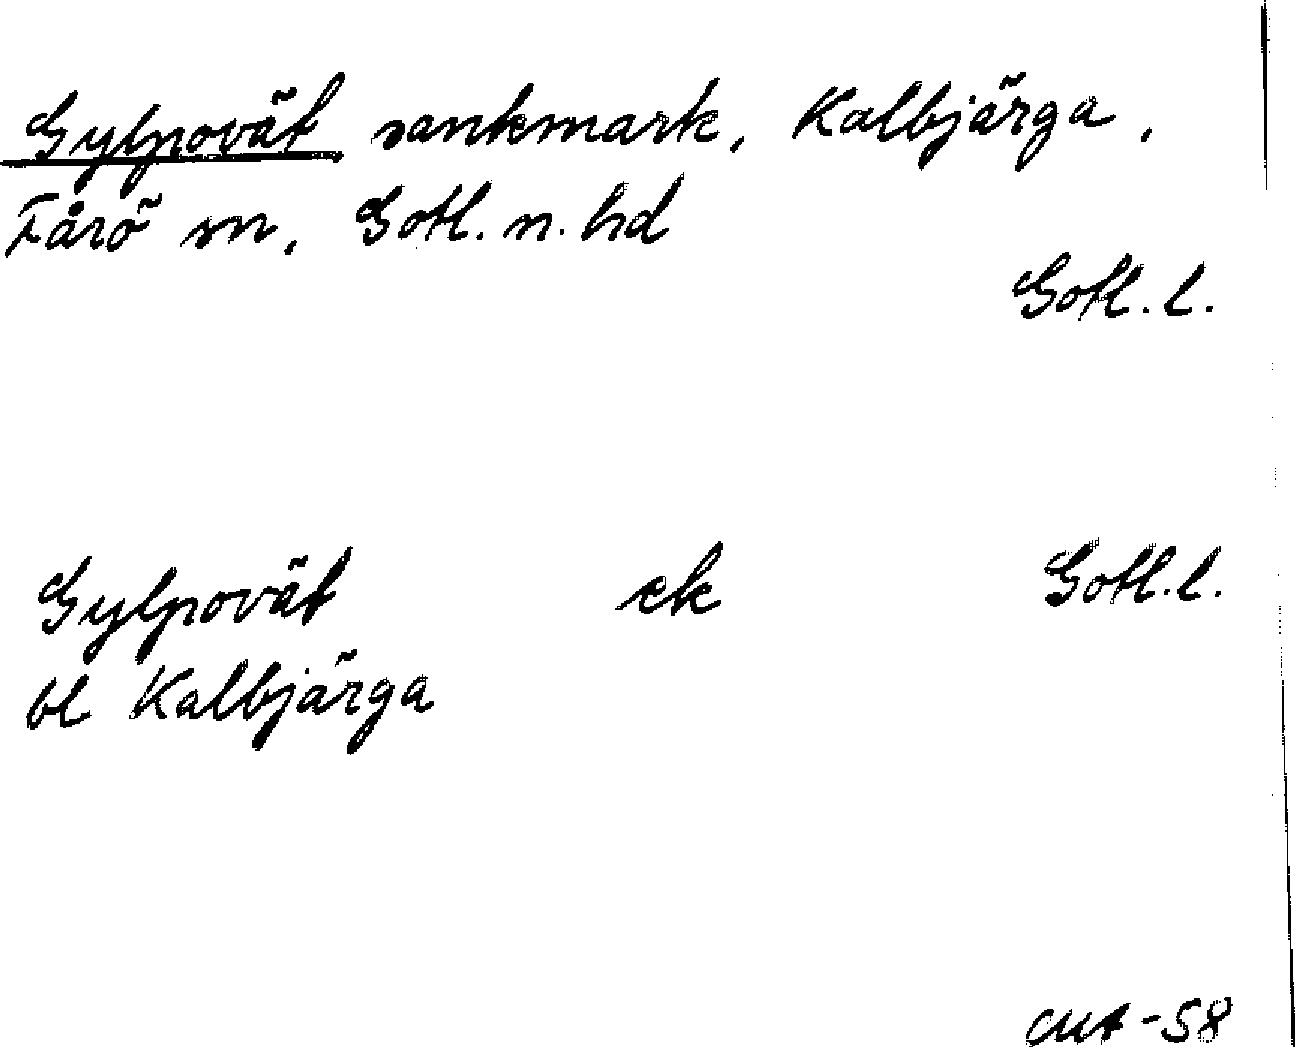 Gylpovät sankmark, Kalbjärga,
Fårö sn, Gotl. n. hd
Gotl. l.
Gylpovät ek Gotl. l.
bl Kalbjärga
-58